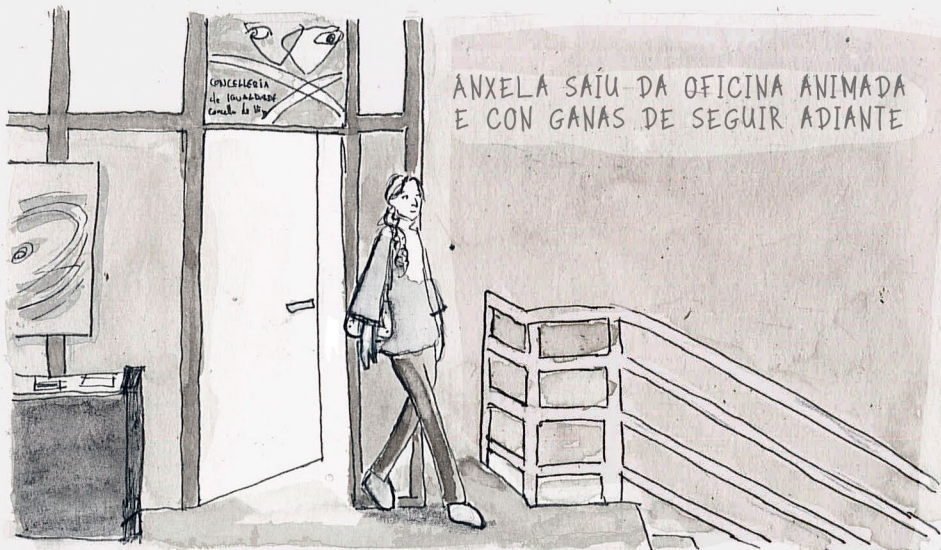 CONCELLERÍA
de IGUALDADE
Concello de Vigo
ANXELA SAÍU DA OFICINA ANIMADA
E CON GANAS DE SEGUIR ADIANTE